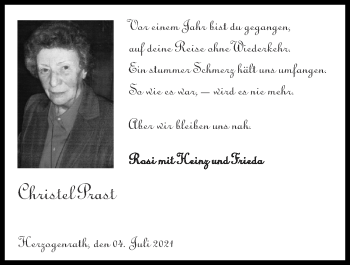 Vor einem Jahr bist du gegangen,
auf deine Reise ohne Wiederkehr.
Ein stummer Schmerz hält uns umfangen.
So wie es war, – wird es nie mehr.
Aber wir bleiben uns nah.
Rosi mit Heinz und Frieda
Christel Prast
Herzogenrath, den 04. Juli 2021